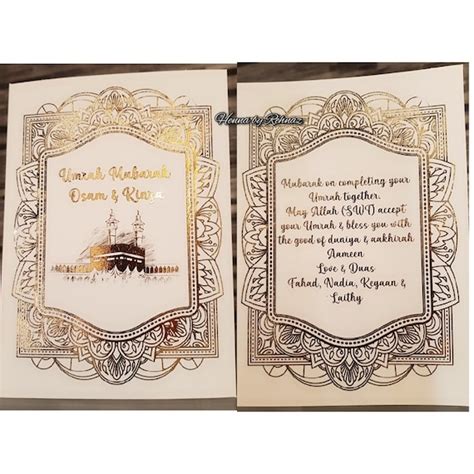 Henna by Rehnaz
Umrah Mubarak
Osam & Kinza
Mubarak on completing your
Umrah together.
May Allah (SWT) accept
your Umrah & bless you with
the good of duniya & aakhirah
Aameen
Love & Duas
Fahad, Nadia, Keyaan &
Laithy